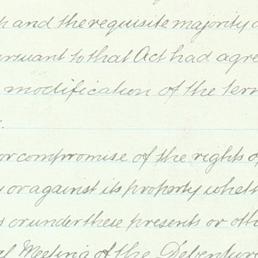 and the requisite majority
pursuant to that Act had agre
modification of the ter
or compromise of the rights o
or against its property wheth
or under these presents or oth
Meeting of the Debenture